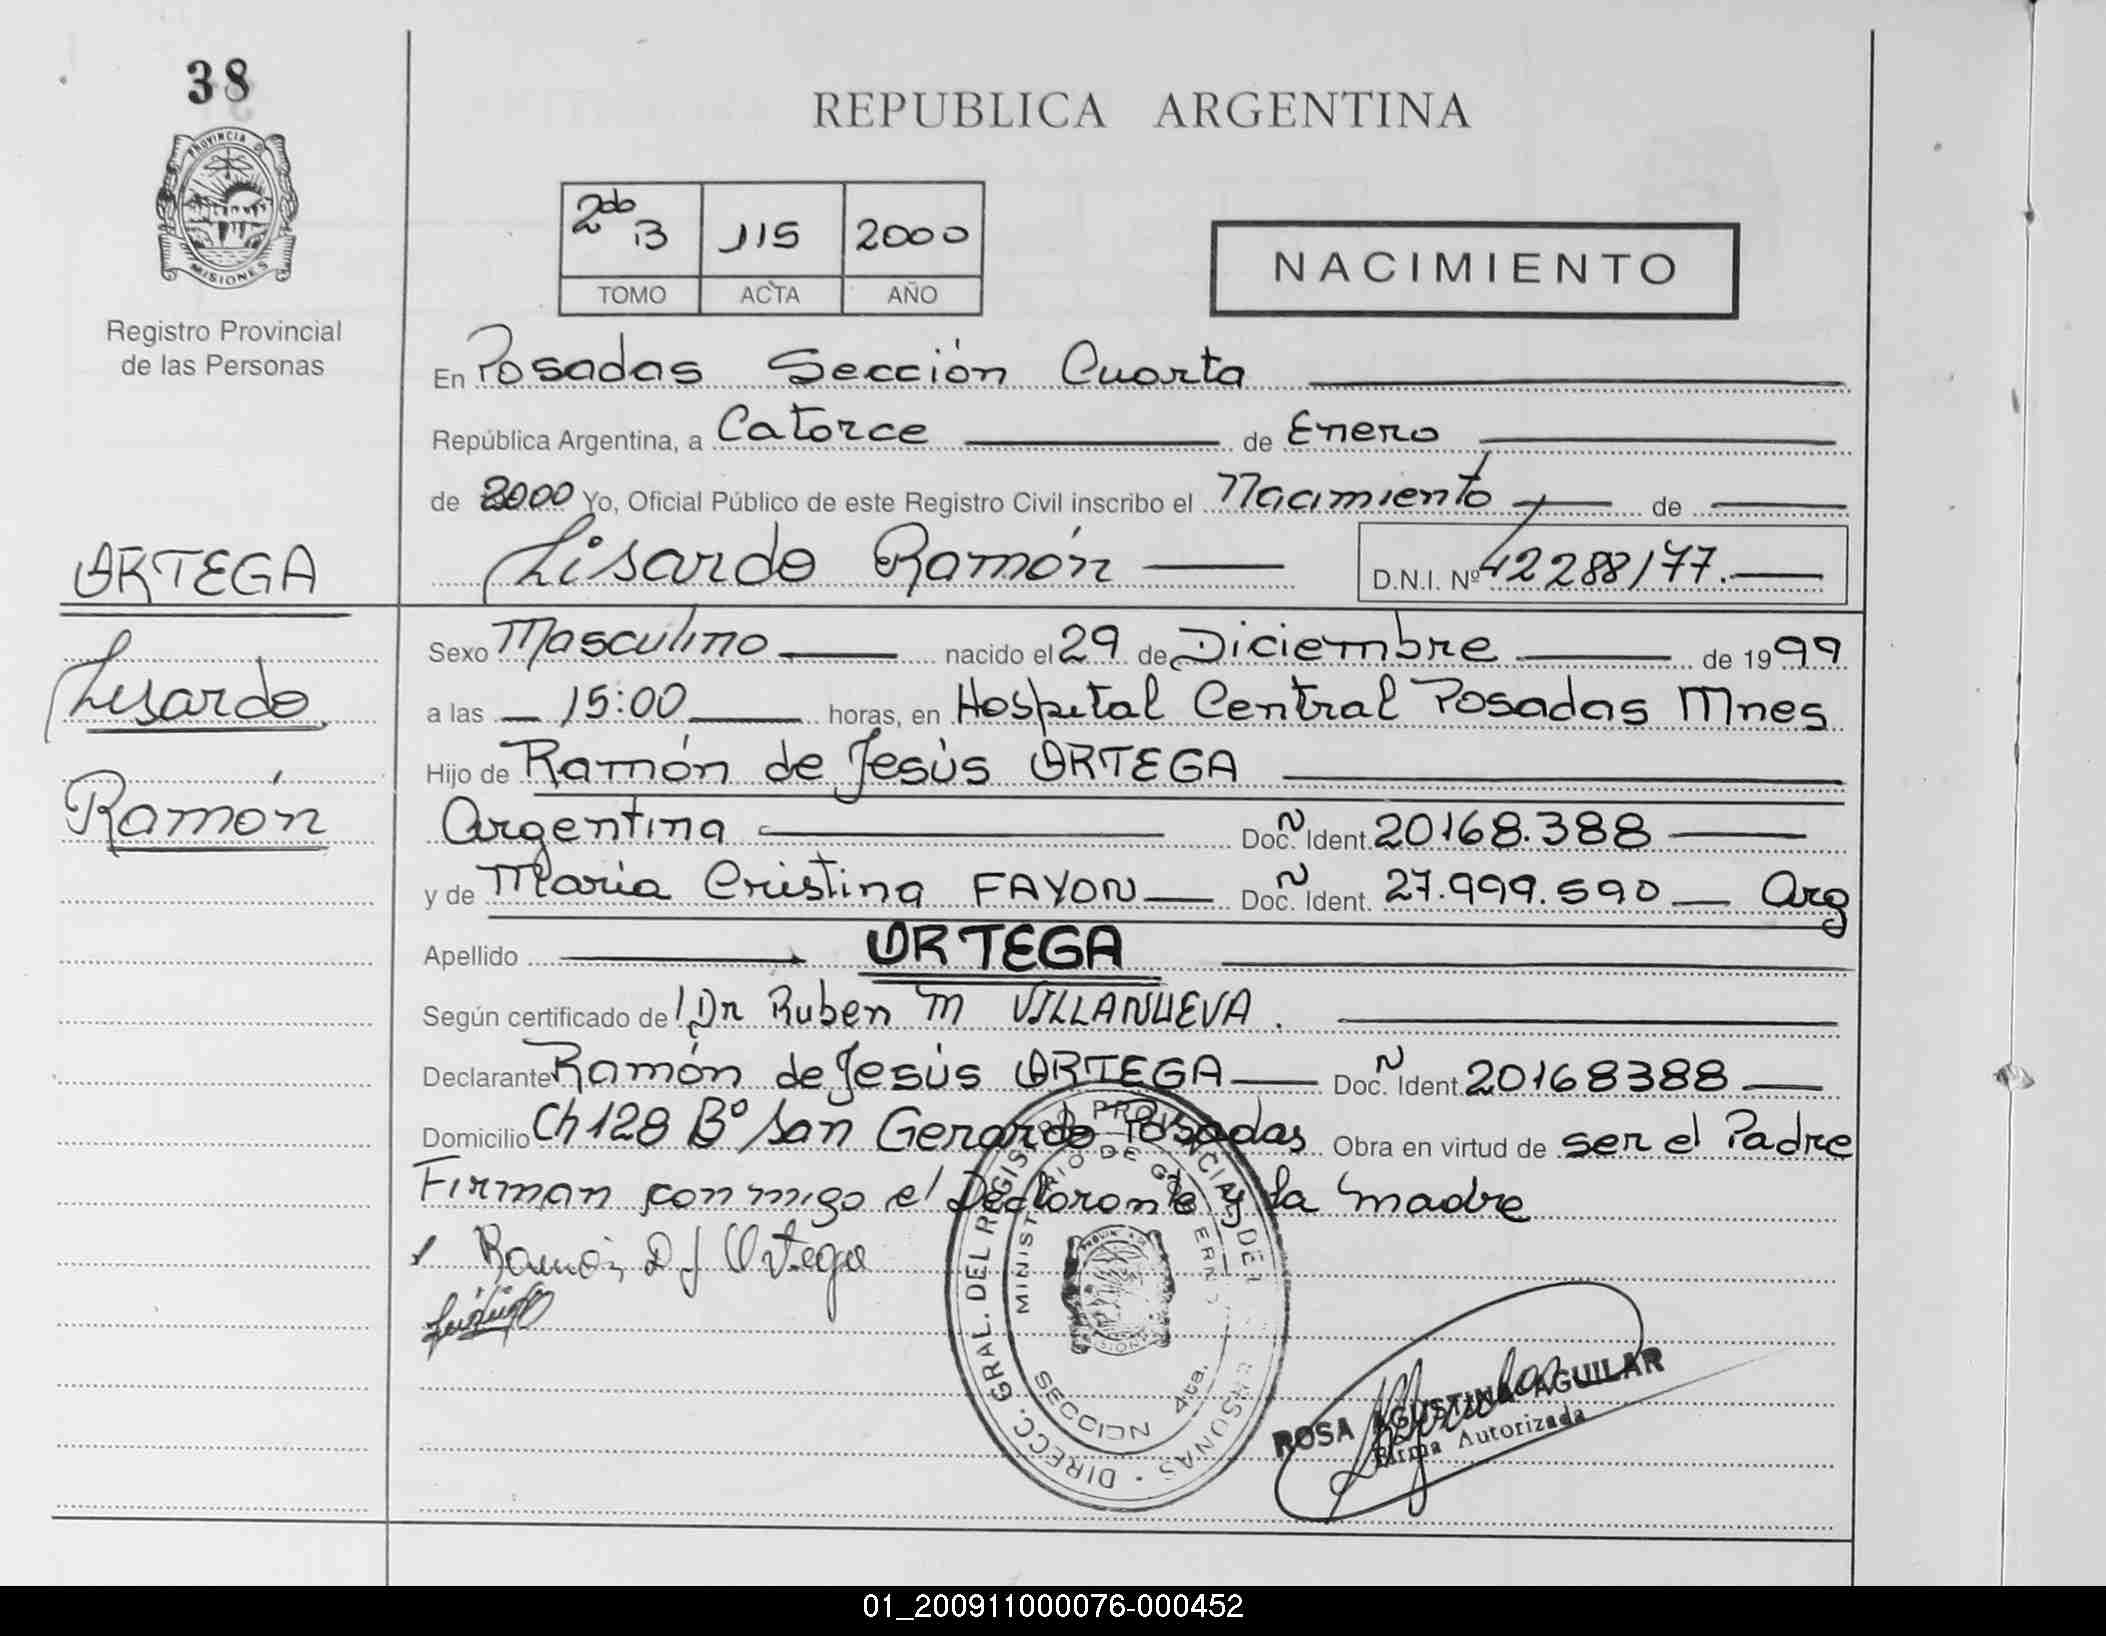 38
REPUBLICA ARGENTINA
PROVINCIA DE
MISIONES
Registro Provincial
de las Personas
2do B 115 2000
TOMO ACTA AÑO
NACIMIENTO
En Posadas Sección Cuarta
República Argentina, a Catorce de Enero
de 2000 Yo, Oficial Público de este Registro Civil inscribo el Nacimiento de
Lisardo Ramón D.N.I. Nº 42288177.
ORTEGA
Lisardo
Ramón
Sexo Masculino nacido el 29 de Diciembre de 1999
a las 15:00 horas, en Hospital Central Posadas Mnes
Hijo de Ramón de Jesús ORTEGA
Argentina Doc. Ident. 20168.388
y de Maria Cristina FAYON Doc. Ident. 27.999.590 Arg
Apellido ORTEGA
Según certificado de Dr Ruben M VILLANUEVA.
Declarante Ramón de Jesús ORTEGA Doc. Ident. 20168388
Domicilio Ch 128 Bº San Gerardo Posadas Obra en virtud de ser el Padre
Firman conmigo el Declarante y la madre
Ramón D J Ortega
DIRECC. GRAL. DEL REGISTRO PROVINCIAL DE LAS PERSONAS
MINISTERIO DE GOBIERNO
SECCION 4ta.
ROSA AGUSTINA AGUILAR
Firma Autorizada
01_200911000076-000452